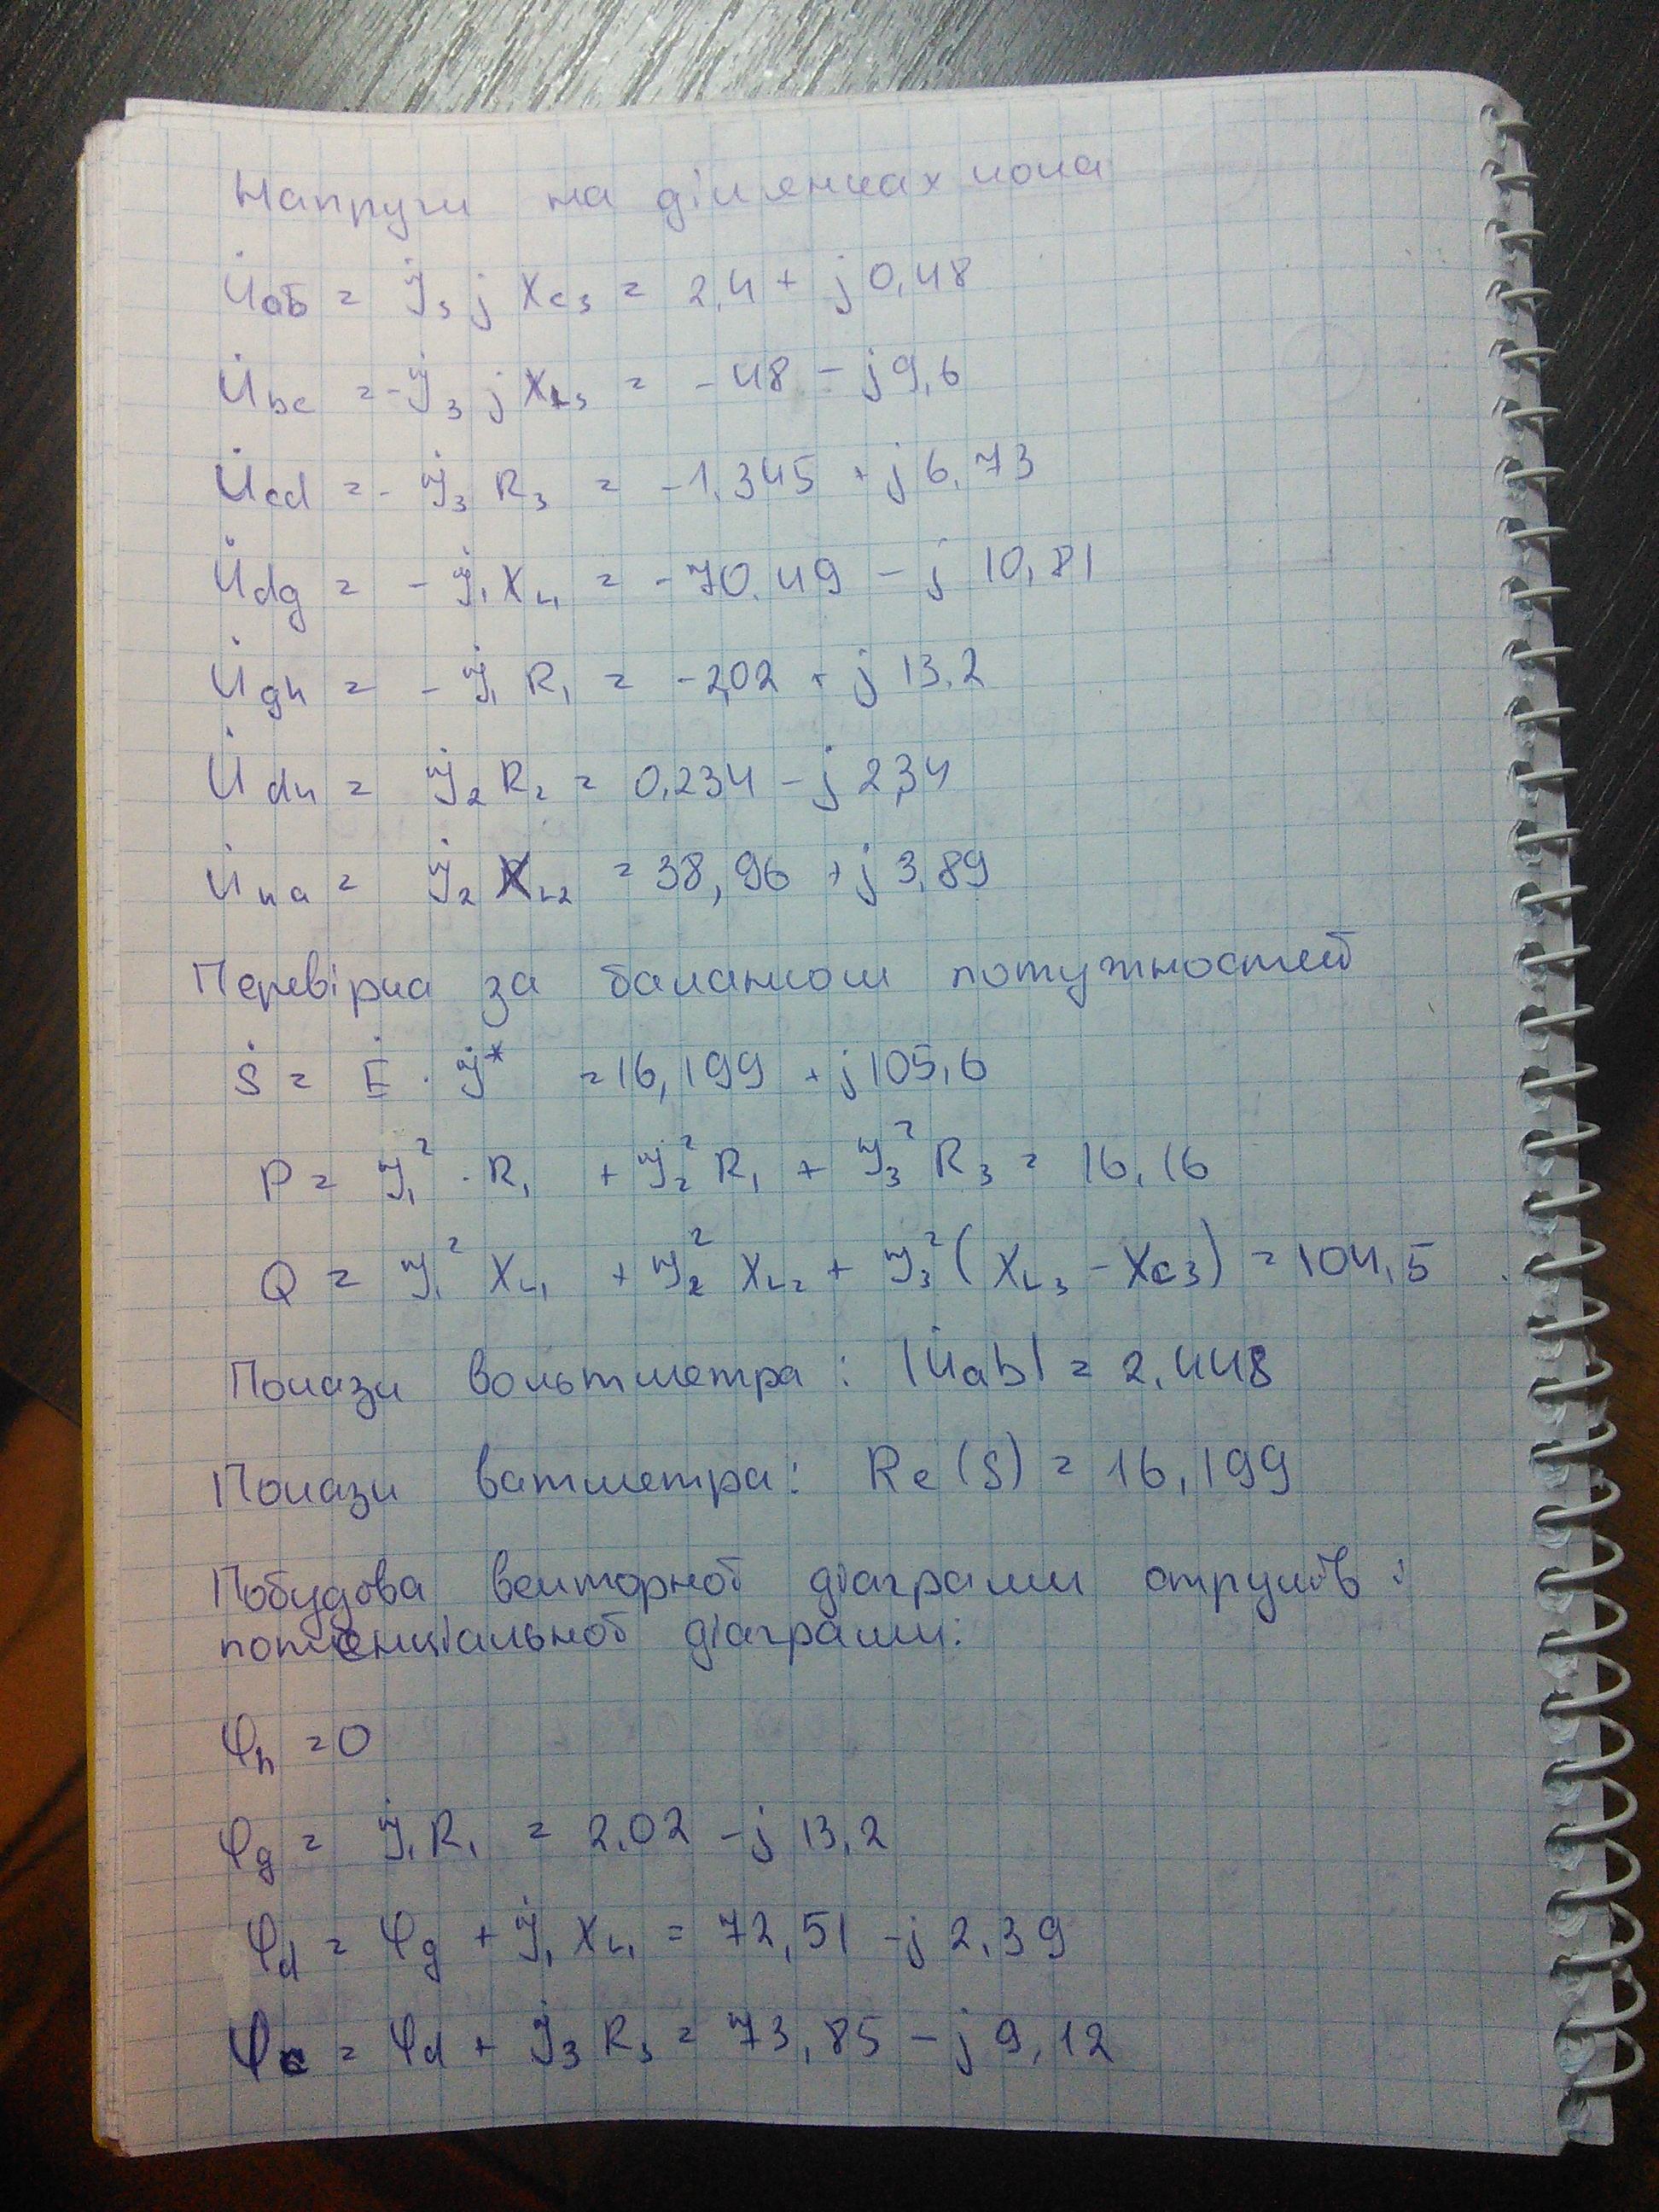 Напруги на ділянках кола
U̇ab = İ3 j Xc3 = 2,4 + j 0,48
U̇bc = -İ3 j XL3 = -48 - j9,6
U̇cd = - İ3 R3 = -1,345 + j6,73
U̇dg = - İ1 XL1 = -70.49 - j 10,81
U̇gh = - İ1 R1 = -2,02 + j 13.2
U̇dn = İ2 R2 = 0,234 - j 2,34
U̇na = İ2 XL2 = 38,96 + j 3,89
Перевірка за балансом потужностей
Ṡ = Ė · İ* = 16,199 + j105,6
P = I1² · R1 + I2² R1 + I3² R3 = 16,16
Q = I1² XL1 + I2² XL2 + I3² (XL3 - Xc3) = 104,5
Покази вольтметра: |U̇ab| = 2,448
Покази ватметра: Re(S) = 16,199
Побудова векторної діаграми струмів і
потенціальної діаграми:
φh = 0
φg = İ1 R1 = 2.02 - j 13,2
φd = φg + İ1 XL1 = 72,51 - j 2,39
φc = φd + İ3 R3 = 73,85 - j 9,12